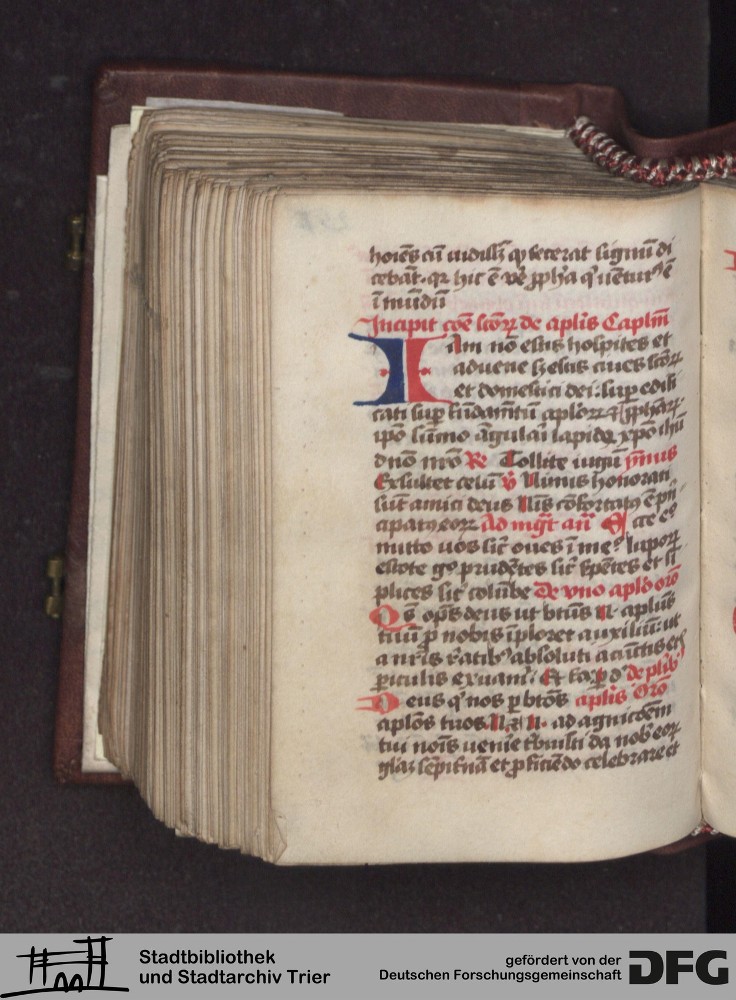 hoīes cū vidissz qͥ fecerat signū di
cebāt · qꝛ hic ē ve᷑ ꝓpha qͥ uētur᷒ ē
ī mūdū
Incipit cōe scōꝝ de aplis Caplm̄
Iam nō estis hospites et
aduene sꝫ estis ciues scōꝝ
et domestici dei : suꝑ edifi
cati suꝑ fūdamētū aploꝝ ⁊ ꝓphaꝝ ·
ipō sūmo āgulari lapide xpō ihū
dnō nrō Re Tollite iugū p̄mus
Exsultet celū v̄ Nimis honorati
sūt amici deus Nīs cōfortatꝰ ē pri
cipatꝰ eoꝝ Ad mgt̄ an̄ Ecce e°
mitto vos sic̄ oues ī me° lupoꝝ
estote g° prudētes sic̄ ẜpētes et si
plices sic̄ colūbe De vno aplo orō
Qs̄ op̄s deus ut btūs N aplus
tuus ꝓ nobis īploret auxiliū : ut
a nr̄is r̄atibꝰ absoluti a cūctis etꝫ
ꝑiculis exuam᷒ Et fa ꝑ d de plibꝰ
Deus qͥ nos ꝑ btōs aplis Orō
aplōs tuos N ⁊ N · ad agnicōem
tui noīs venire t̄buisti da nob̄ eoꝝ
glāꝫ sēpit̄nā et ꝓficiēdo celebrare et
Stadtbibliothek
und Stadtarchiv Trier
gefördert von der
Deutschen Forschungsgemeinschaft
DFG